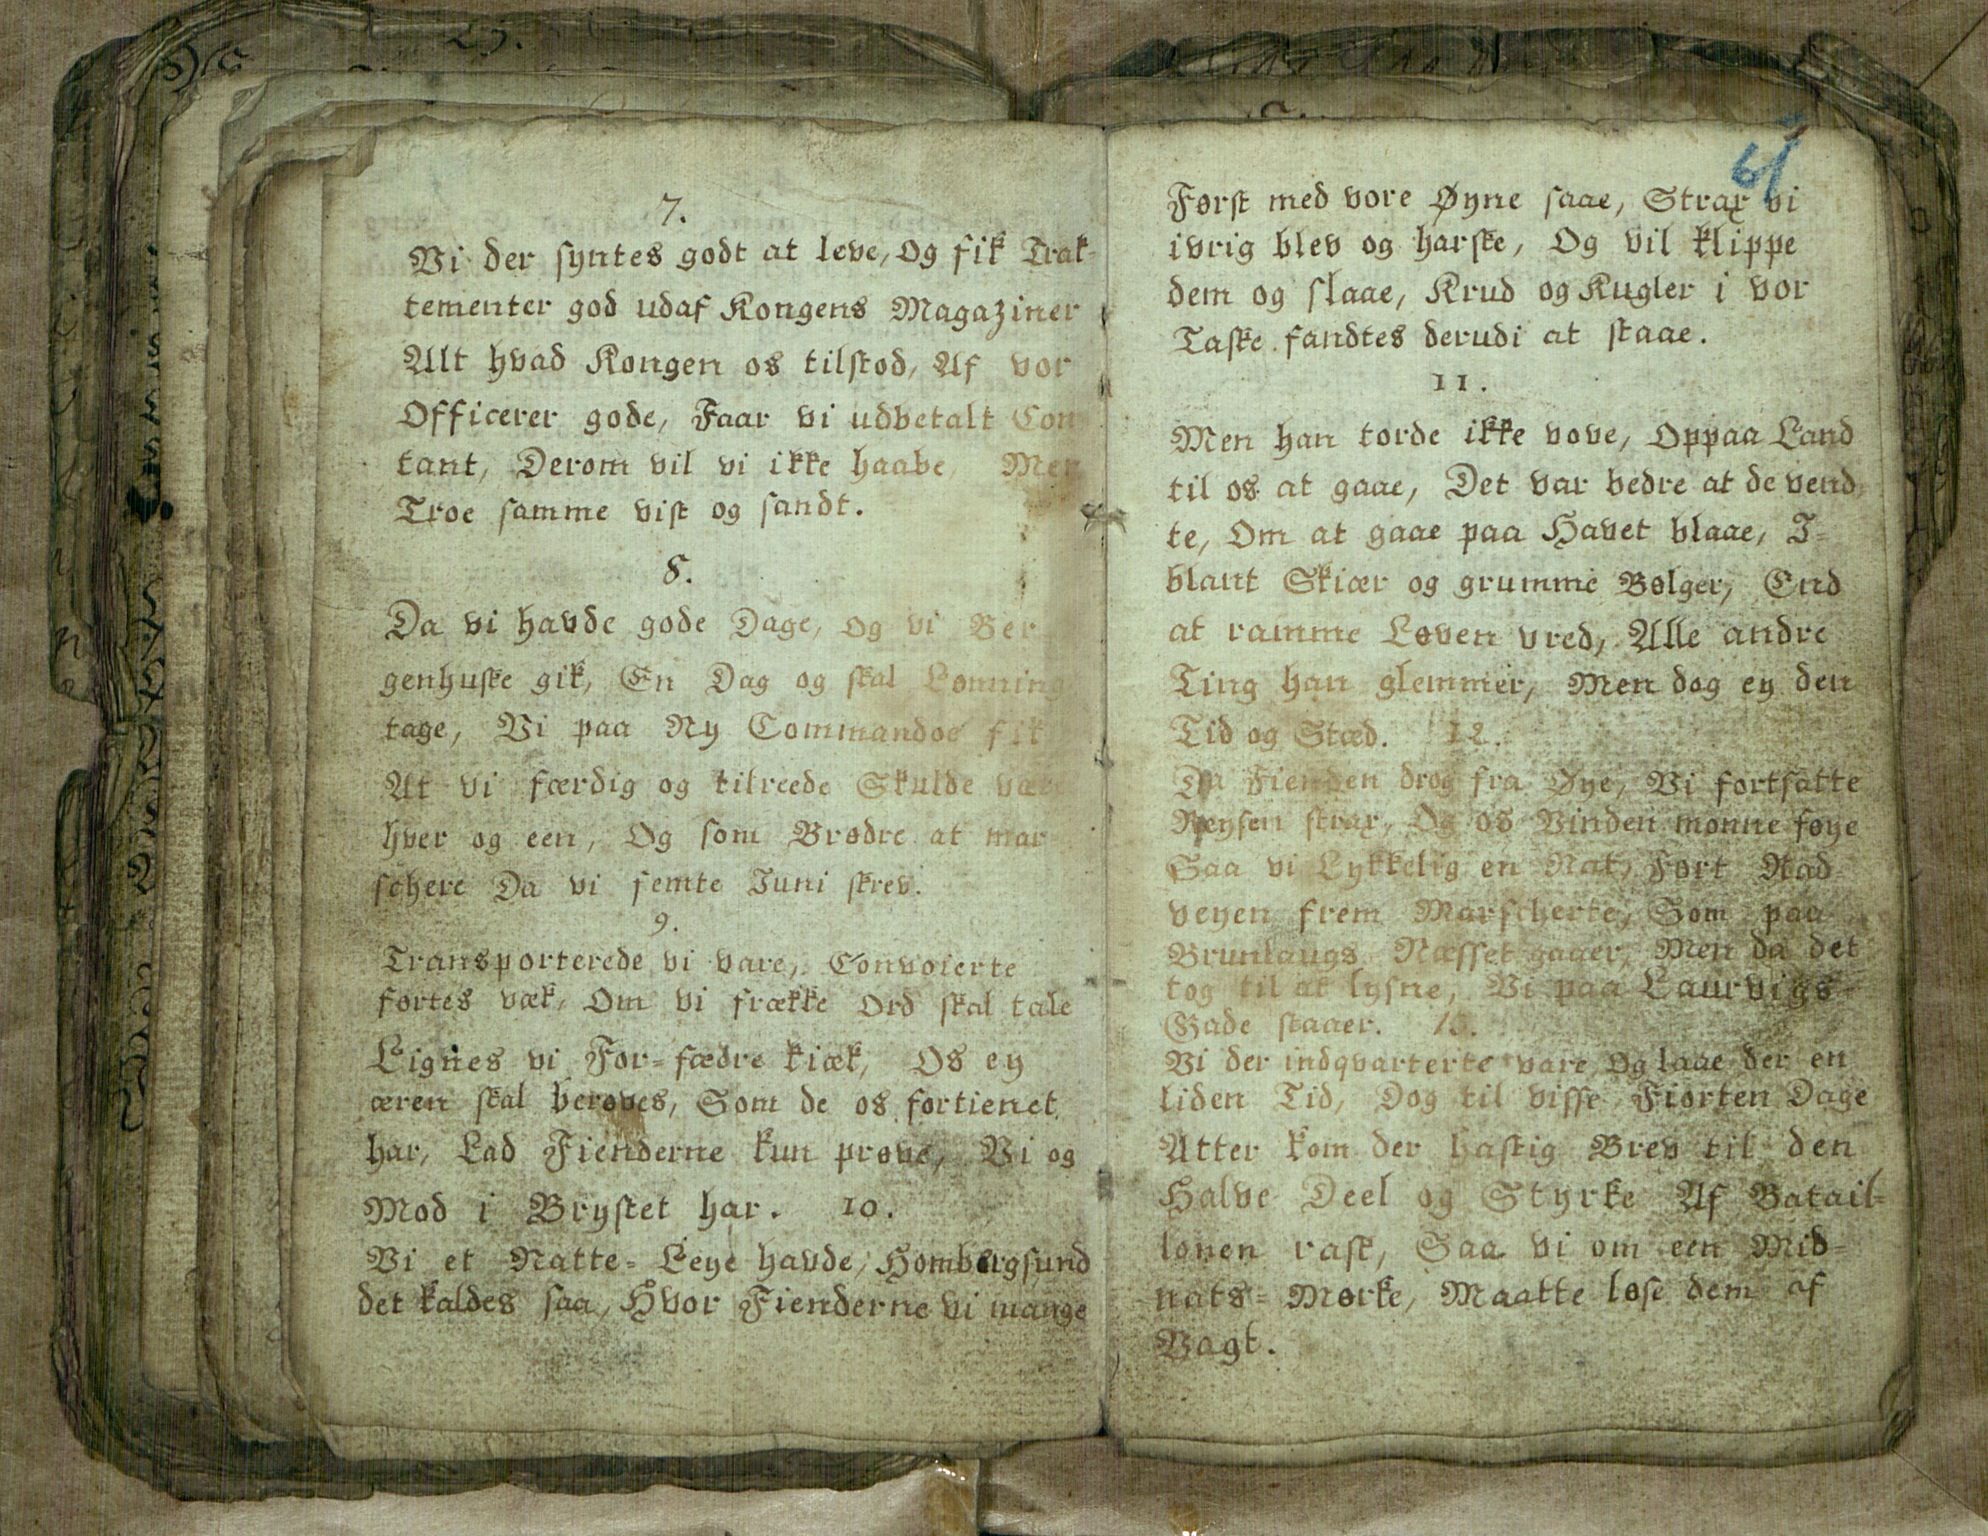 7.
Vi der syntes godt at leve, og fik Trak-
tementer god udaf Kongens Magaziner
Alt hvad Kongen os tilstod, Af vor
Officerer gode, Faar vi udbetalt Con
tant, Derom vil vi ikke haabe, Men
Troe samme vist og sandt.
8.
Da vi havde gode Dage, og vi Ber
genhuske gik, En Dag og skal Lønning
tage, Vi paa Ny Commandoe fik
At vi færdig og tilreede Skulde være
hver og een, Og som Brødre at mar
schere Da vi femte Juni skrev.
9.
Transporterede vi vare, Convoierte
førtes væk, Om vi frække Ord skal tale
Lignes vi For=fædre kiæk, Os ey
æren skal berøves, Som de os fortienet
har, Lad Fienderne kun prøve, Vi og
Mod i Brystet har. 10.
Vi et Natte=Leye havde, Hombergsund
det kaldes saa, Hvor Fienderne vi mange
61
Først med vore Øyne saae, Strax vi
ivrig blev og harske, Og vil klippe
dem og slaae, Krud og Kugler i vor
Taske fandtes derudi at staae.
11.
Men han torde ikke vove, Oppaa Land
til os at gaae, Det var bedre at de vend
te, Om at gaae paa Havet blaae, I=
blant Skiær og grumme Bølger, End
at ramme Løven vred, Alle andre
Ting han glemmer, Men dog ey den
Tid og Stæd. 12.
Fienden drog fra Øye, Vi fortsatte
Reysen strax, Og os Vinden monne føye
Saa vi Lykkelig en Nat, Fort Rad
veyen frem Marscherte, Som paa
Brunlaugs Næsset gaaer, Men da det
tog til at lysne, Vi paa Laurvigs
Gade staaer. 13.
Vi der indqvarterte vare, Og laae der en
liden Tid, Dog til visse Fiorten Dage
Atter kom der hastig Brev til den
Halve Deel og Styrke Af Batail=
lonen rask, Saa vi om een Mid=
nats=Mørke, Maatte løse dem af
Vagt.